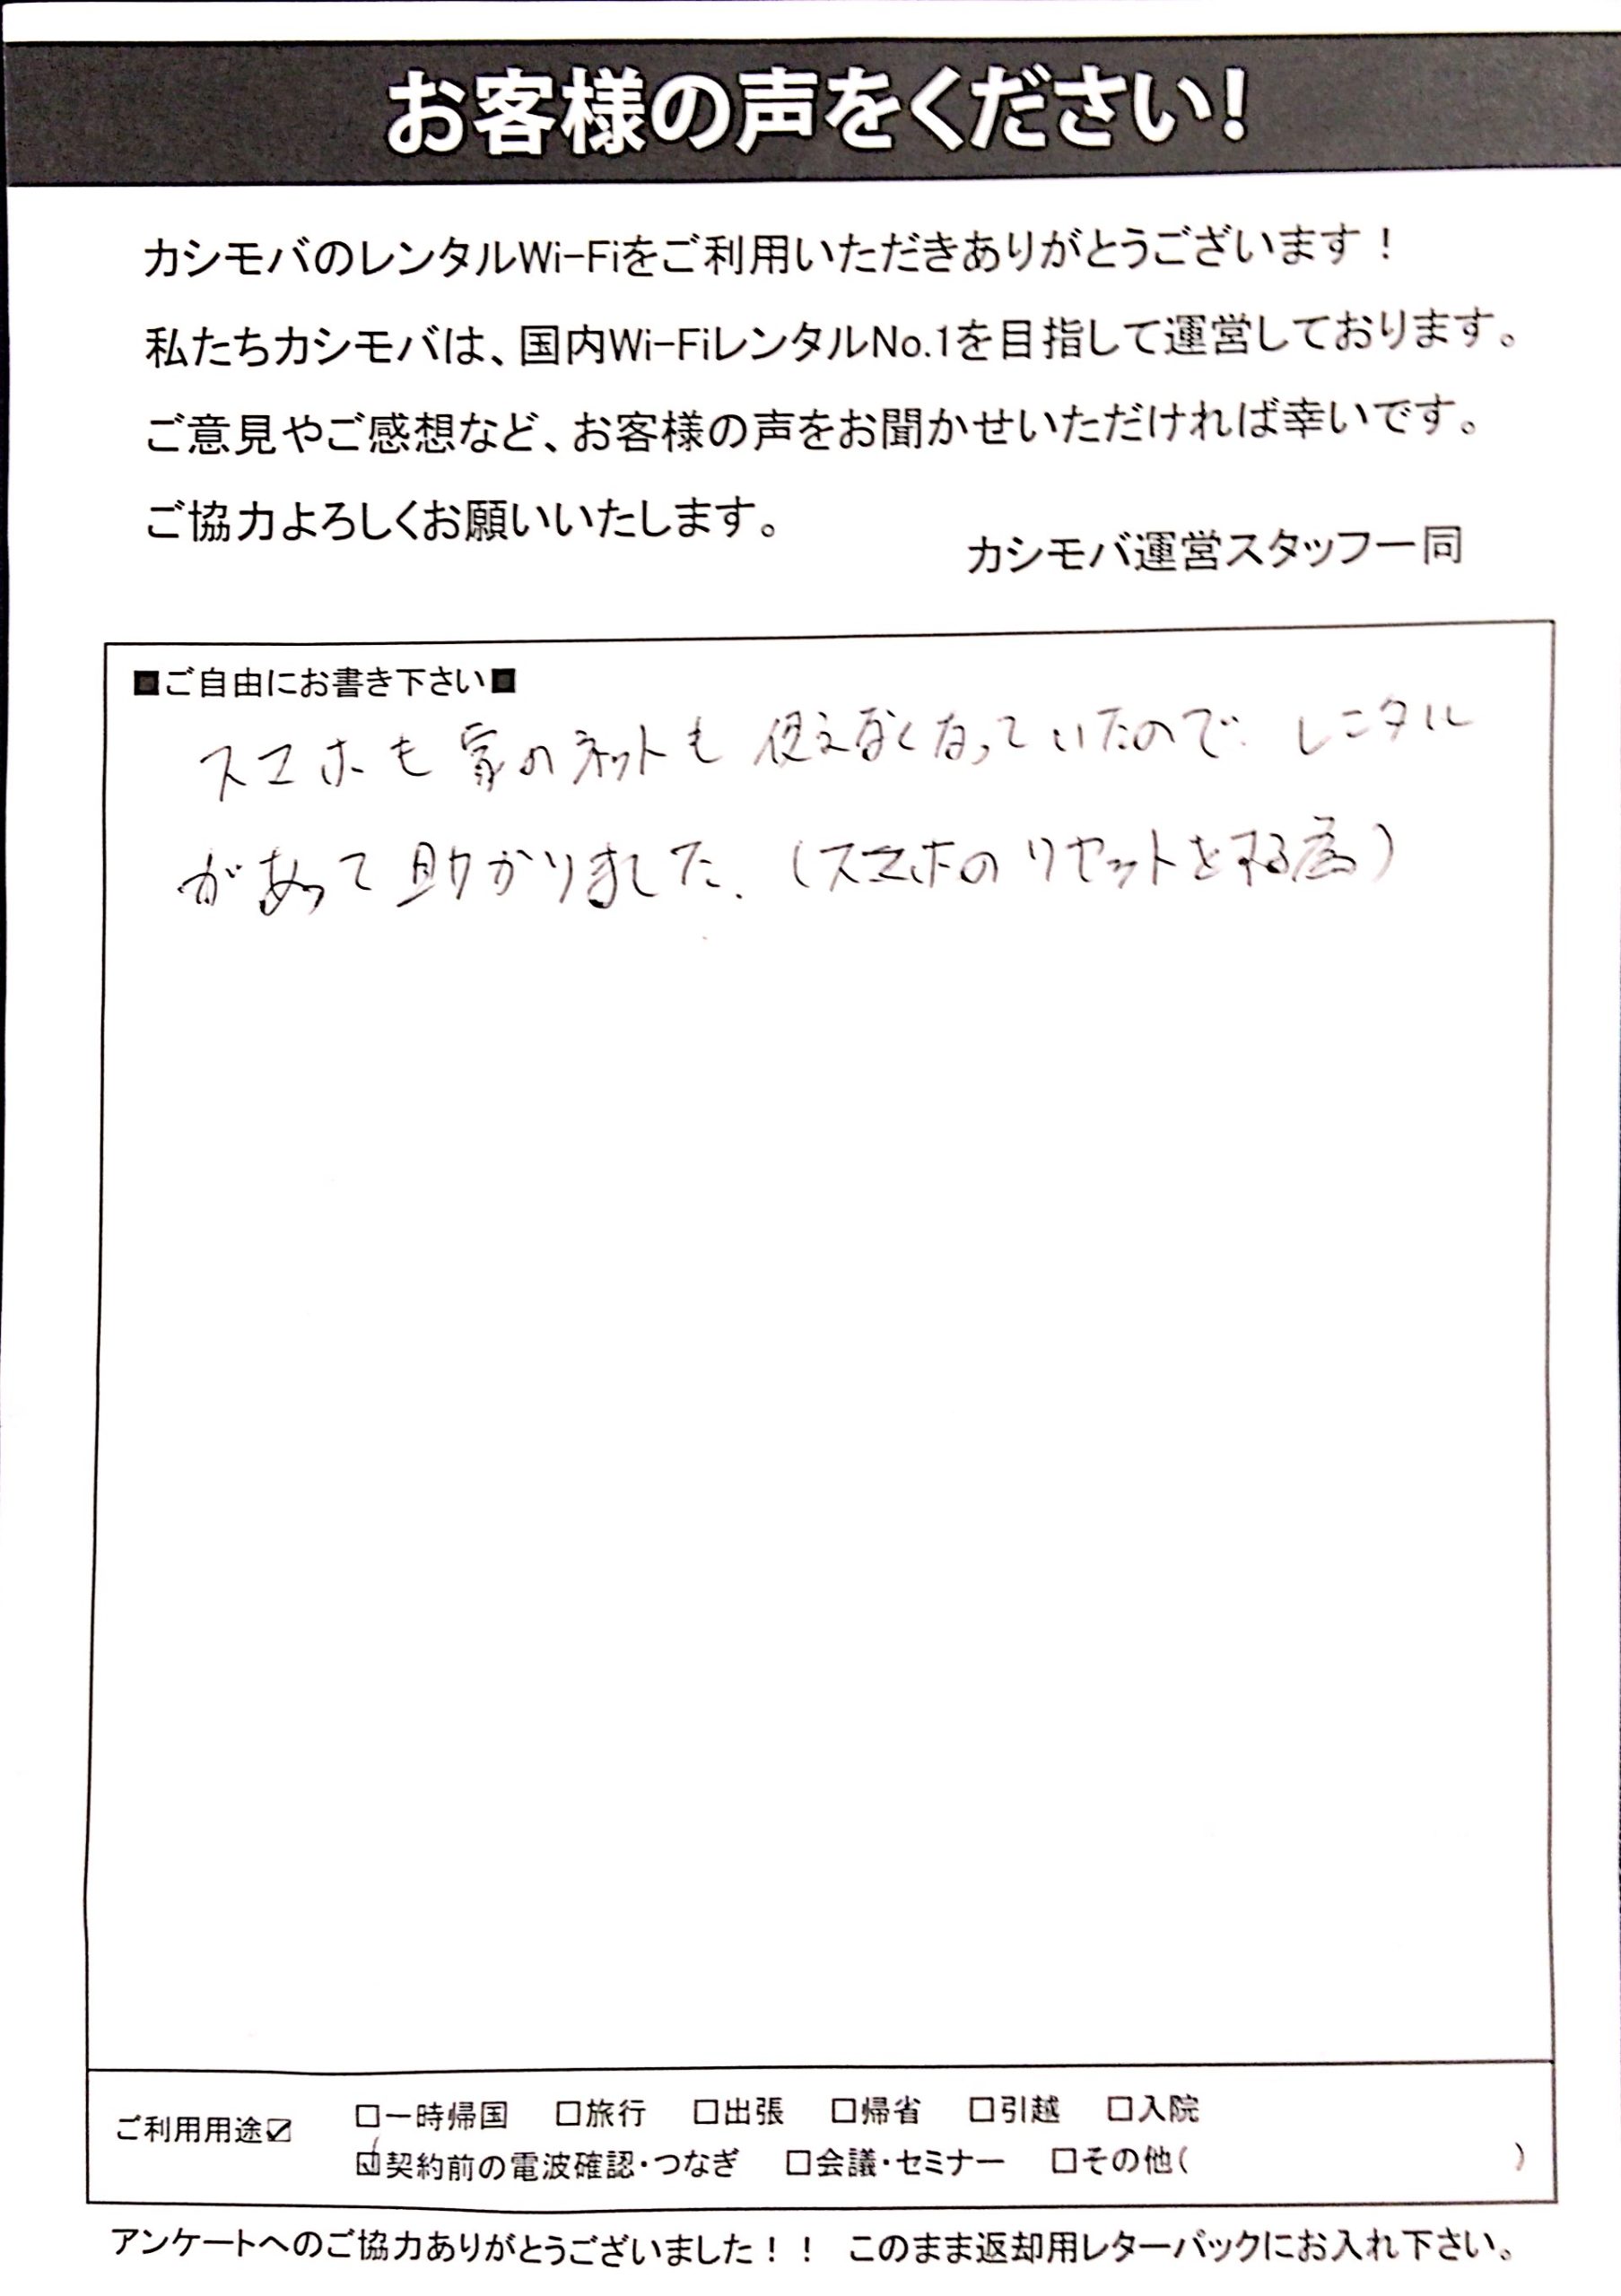 お客様の声をください!
カシモバのレンタルWi-Fiをご利用いただきありがとうございます！
私たちカシモバは、国内Wi-FiレンタルNo.1を目指して運営しております。
ご意見やご感想など、お客様の声をお聞かせいただければ幸いです。
ご協力よろしくお願いいたします。
カシモバ運営スタッフ一同
■ご自由にお書き下さい■
スマホも家のネットも使えなくなっていたので レンタル
があって助かりました.（スマホのリセットをする為）
ご利用用途☑ □一時帰国 □旅行 □出張 □帰省 □引越 □入院
☑契約前の電波確認・つなぎ □会議・セミナー □その他( )
アンケートへのご協力ありがとうございました！！ このまま返却用レターパックにお入れ下さい。